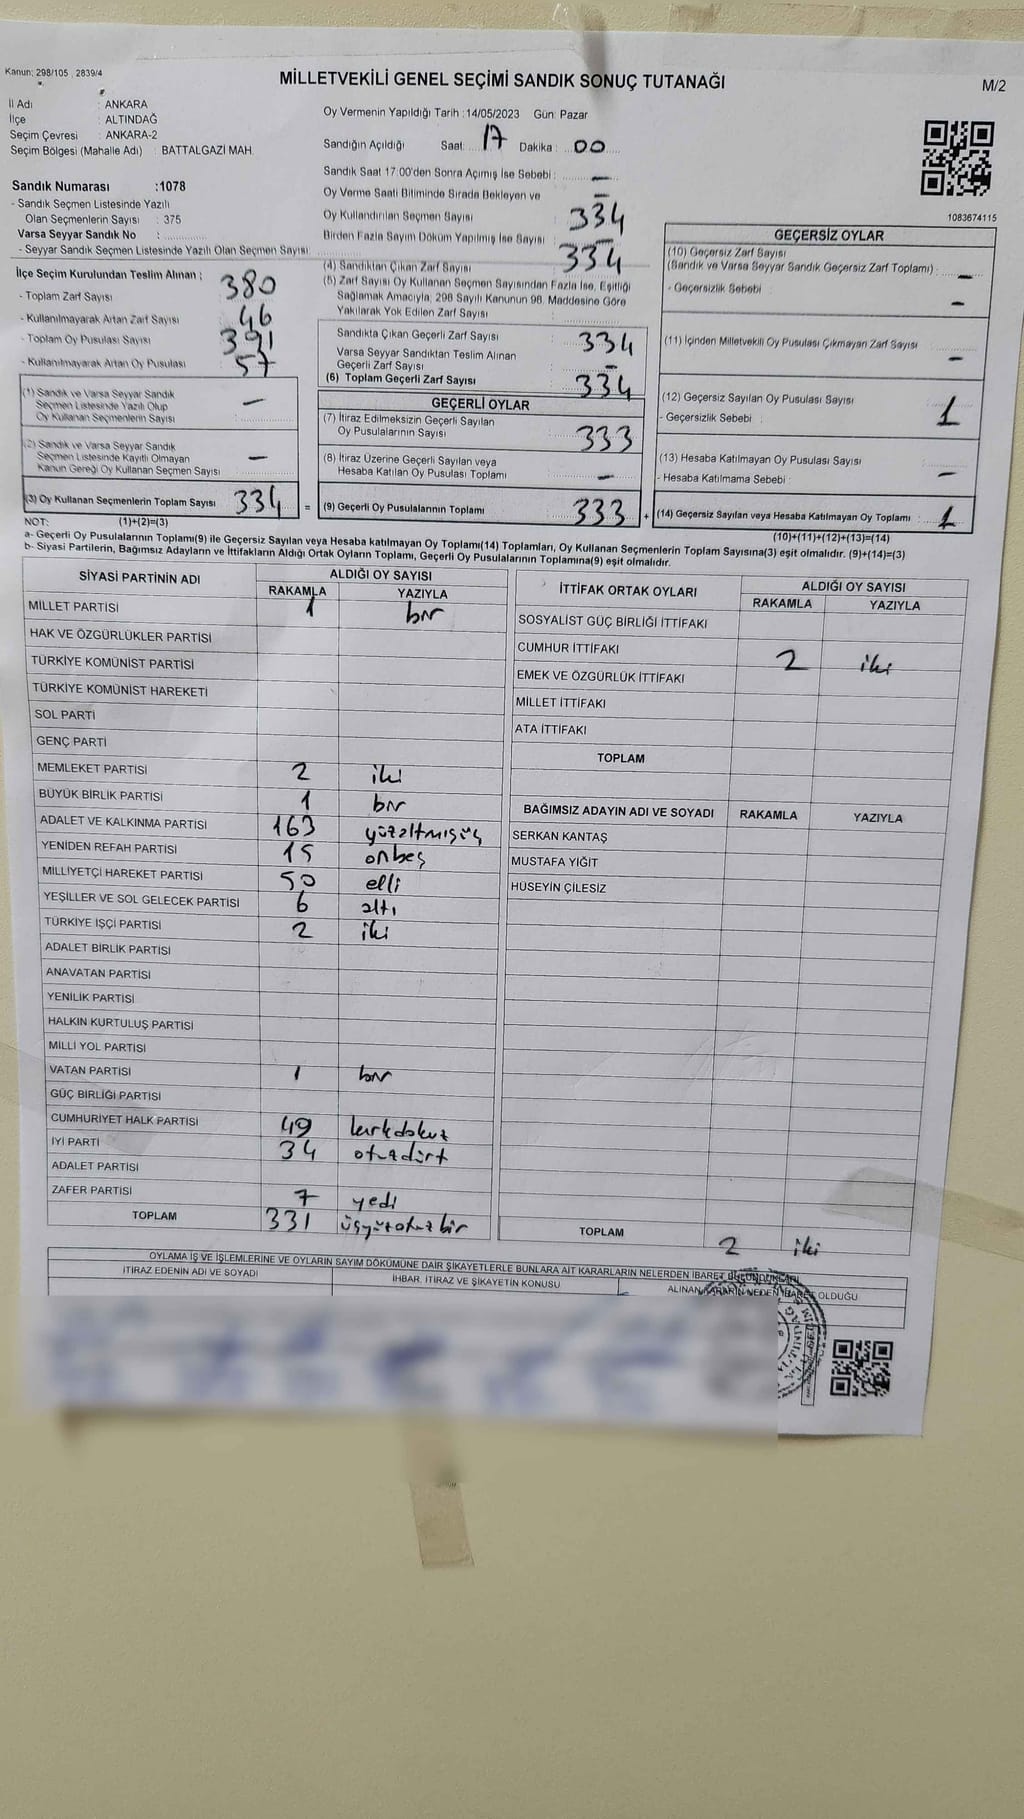 Kanun: 298/105 , 2839/4
MİLLETVEKİLİ GENEL SEÇİMİ SANDIK SONUÇ TUTANAĞI
M/2
İl Adı : ANKARA
İlçe : ALTINDAĞ
Seçim Çevresi : ANKARA-2
Seçim Bölgesi (Mahalle Adı) : BATTALGAZİ MAH.
Sandık Numarası :1078
- Sandık Seçmen Listesinde Yazılı
Olan Seçmenlerin Sayısı : 375
Varsa Seyyar Sandık No :
- Seyyar Sandık Seçmen Listesinde Yazılı Olan Seçmen Sayısı:
İlçe Seçim Kurulundan Teslim Alınan :
- Toplam Zarf Sayısı 380
- Kullanılmayarak Artan Zarf Sayısı 46
- Toplam Oy Pusulası Sayısı 391
- Kullanılmayarak Artan Oy Pusulası 57
(1) Sandık ve Varsa Seyyar Sandık
Seçmen Listesinde Yazılı Olup
Oy Kullanan Seçmenlerin Sayısı —
(2) Sandık ve Varsa Seyyar Sandık
Seçmen Listesinde Kayıtlı Olmayan
Kanun Gereği Oy Kullanan Seçmen Sayısı —
(3) Oy Kullanan Seçmenlerin Toplam Sayısı 334
Oy Vermenin Yapıldığı Tarih :14/05/2023 Gün: Pazar
Sandığın Açıldığı Saat: 17 Dakika : 00
Sandık Saat 17:00'den Sonra Açımış İse Sebebi : —
Oy Verme Saati Bitiminde Sırada Bekleyen ve
Oy Kullandırılan Seçmen Sayısı : — 334
Birden Fazla Sayım Döküm Yapılmış İse Sayısı : —
(4) Sandıktan Çıkan Zarf Sayısı 334
(5) Zarf Sayısı Oy Kullanan Seçmen Sayısından Fazla İse, Eşitliği
Sağlamak Amacıyla, 298 Sayılı Kanunun 98. Maddesine Göre
Yakılarak Yok Edilen Zarf Sayısı :
Sandıkta Çıkan Geçerli Zarf Sayısı 334
Varsa Seyyar Sandıktan Teslim Alınan
Geçerli Zarf Sayısı —
(6) Toplam Geçerli Zarf Sayısı 334
GEÇERLİ OYLAR
(7) İtiraz Edilmeksizin Geçerli Sayılan
Oy Pusulalarının Sayısı 333
(8) İtiraz Üzerine Geçerli Sayılan veya
Hesaba Katılan Oy Pusulası Toplamı —
= (9) Geçerli Oy Pusulalarının Toplamı 333 +
1083674115
GEÇERSİZ OYLAR
(10) Geçersiz Zarf Sayısı
(Sandık ve Varsa Seyyar Sandık Geçersiz Zarf Toplamı) : —
- Geçersizlik Sebebi : —
(11) İçinden Milletvekili Oy Pusulası Çıkmayan Zarf Sayısı —
(12) Geçersiz Sayılan Oy Pusulası Sayısı 1
- Geçersizlik Sebebi :
(13) Hesaba Katılmayan Oy Pusulası Sayısı
- Hesaba Katılmama Sebebi : —
(14) Geçersiz Sayılan veya Hesaba Katılmayan Oy Toplamı : 1
NOT: (1)+(2)=(3)
(10)+(11)+(12)+(13)=(14)
a- Geçerli Oy Pusulalarının Toplamı(9) ile Geçersiz Sayılan veya Hesaba katılmayan Oy Toplamı(14) Toplamları, Oy Kullanan Seçmenlerin Toplam Sayısına(3) eşit olmalıdır. (9)+(14)=(3)
b- Siyasi Partilerin, Bağımsız Adayların ve İttifakların Aldığı Ortak Oyların Toplamı, Geçerli Oy Pusulalarının Toplamına(9) eşit olmalıdır.
SİYASİ PARTİNİN ADI
ALDIĞI OY SAYISI
RAKAMLA YAZIYLA
MİLLET PARTİSİ 1 bir
HAK VE ÖZGÜRLÜKLER PARTİSİ
TÜRKİYE KOMÜNİST PARTİSİ
TÜRKİYE KOMÜNİST HAREKETİ
SOL PARTİ
GENÇ PARTİ
MEMLEKET PARTİSİ 2 iki
BÜYÜK BİRLİK PARTİSİ 1 bir
ADALET VE KALKINMA PARTİSİ 163 yüzaltmışüç
YENİDEN REFAH PARTİSİ 15 onbeş
MİLLİYETÇİ HAREKET PARTİSİ 50 elli
YEŞİLLER VE SOL GELECEK PARTİSİ 6 altı
TÜRKİYE İŞÇİ PARTİSİ 2 iki
ADALET BİRLİK PARTİSİ
ANAVATAN PARTİSİ
YENİLİK PARTİSİ
HALKIN KURTULUŞ PARTİSİ
MİLLİ YOL PARTİSİ
VATAN PARTİSİ 1 bir
GÜÇ BİRLİĞİ PARTİSİ
CUMHURİYET HALK PARTİSİ 49 kırkdokuz
İYİ PARTİ 34 otuzdört
ADALET PARTİSİ
ZAFER PARTİSİ 7 yedi
TOPLAM 331 üçyüzotuzbir
İTTİFAK ORTAK OYLARI
ALDIĞI OY SAYISI
RAKAMLA YAZIYLA
SOSYALİST GÜÇ BİRLİĞİ İTTİFAKI
CUMHUR İTTİFAKI 2 iki
EMEK VE ÖZGÜRLÜK İTTİFAKI
MİLLET İTTİFAKI
ATA İTTİFAKI
TOPLAM
BAĞIMSIZ ADAYIN ADI VE SOYADI RAKAMLA YAZIYLA
SERKAN KANTAŞ
MUSTAFA YİĞİT
HÜSEYİN ÇİLESİZ
TOPLAM 2 iki
OYLAMA İŞ VE İŞLEMLERİNE VE OYLARIN SAYIM DÖKÜMÜNE DAİR ŞİKAYETLERLE BUNLARA AİT KARARLARIN NELERDEN İBARET BULUNDUKLARI
İTİRAZ EDENİN ADI VE SOYADI
İHBAR, İTİRAZ VE ŞİKAYETİN KONUSU
ALINAN KARARIN NEDEN İBARET OLDUĞU